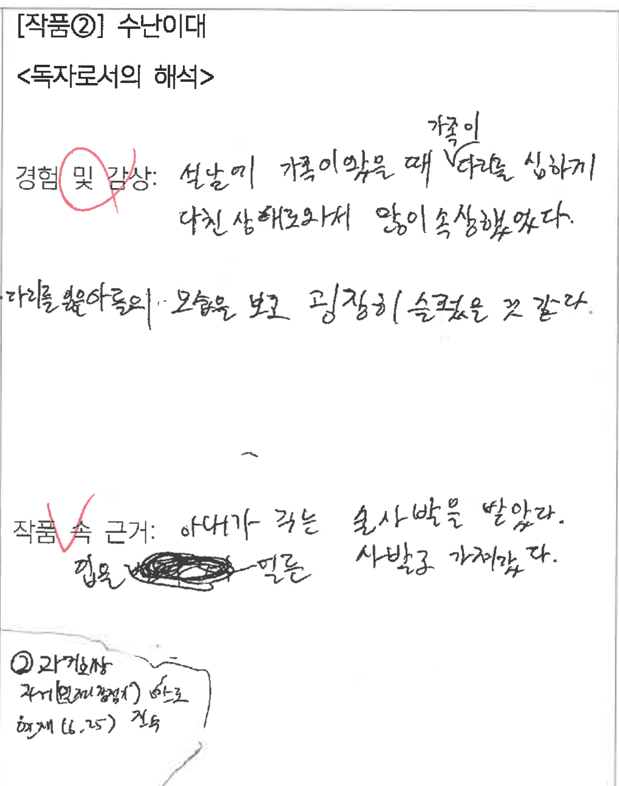 [작품②] 수난이대
<독자로서의 해석>
가족이
경험 및 감상: 설날에 가족이 왔을 때 다리를 심하게
다친 상태로 와서 많이 속상했었다.
다리를 잃은 아들의 모습을 보고 굉장히 슬펐을 것 같다.
작품 속 근거: 아내가 주는 술사발을 받았다.
입을 얼른 사발로 가져갔다.
② 과거
과거(일제강점기)
현재(6.25) 전쟁